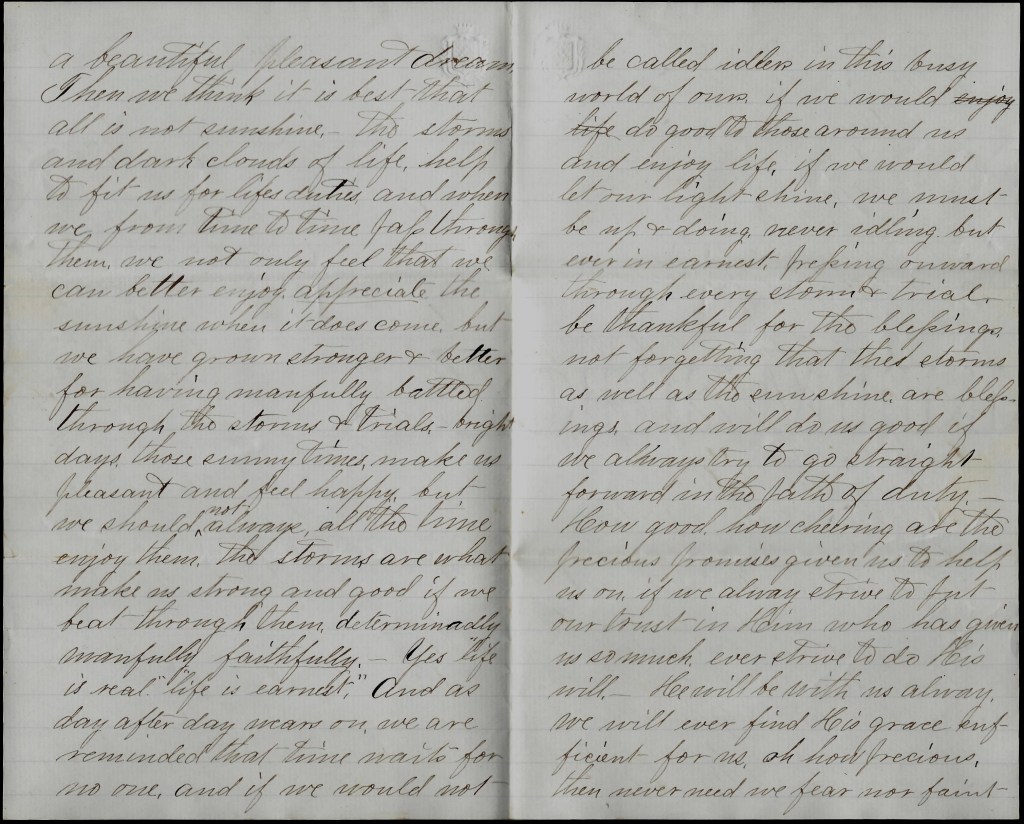 a beautiful pleasant dream.
Then we think it is best that
all is not sunshine, - the storms
and dark clouds of life, help
to fit us for lifes duties, and when
we, from time to time pass through
them, we not only feel that we
can better enjoy, appreciate the
sunshine when it does come, but
we have grown stronger & better
for having manfully battled
through the storms & trials, - bright
days, those sunny times, make us
pleasant and feel happy, but
we should not always, all the time
enjoy them, the storms are what
make us strong and good if we
beat through them, determinadly
manfully, faithfully. - Yes "life
is real" "life is earnest," And as
day after day wears on, we are
reminded that time waits for
no one, and if we would not
be called idlers in this busy
world of ours, if we would enjoy
life do good to those around us
and enjoy life, if we would
let our light shine, we must
be up & doing, never idling but
ever in earnest, pressing onward
through every storm & trial,
be thankful for the blessings,
not forgetting that thes storms
as well as the sunshine, are bless-
ings, and will do us good if
we always try to go straight
forward in the path of duty. -
How good, how cheering are the
precious promises given us to help
us on, if we alway strive to put
our trust in Him who has given
us so much, ever strive to do His
will, - He will be with us alway,
we will ever find His grace suf-
ficient for us, oh how precious,
then never need we fear nor faint